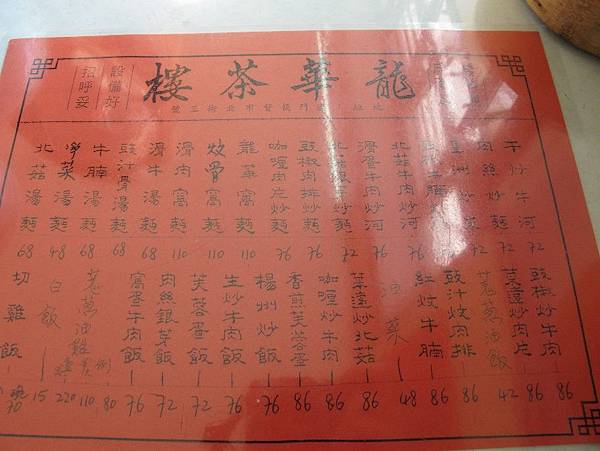 龍華茶樓
地址:澳門提督市北街三號
設備好
招呼妥
干炒牛河 72
肉絲炒麵 72
北菇牛肉炒河 76
滑蛋牛肉炒河 76
炒麵 72
豉椒肉排炒麵 76
咖喱肉片炒麵 76
龍華窩麵 110
炆骨窩麵 110
滑肉窩麵 110
滑牛湯麵 68
豉汁骨湯麵 68
牛腩湯麵 68
學菜湯麵 48
北菇湯麵 68
豉椒炒牛肉 86
菜薳炒肉片 86
油飯 42
豉汁炆肉排 86
紅炆牛腩 86
油菜 48
菜薳炒北菇 86
咖喱炒牛肉 86
香煎芙蓉蛋 86
楊州炒飯 76
生炒牛肉飯 76
芙蓉蛋飯 72
肉絲銀芽飯 72
窩蛋牛肉飯 76
油雞 例 80 110 220
白飯 15
切雞飯 70